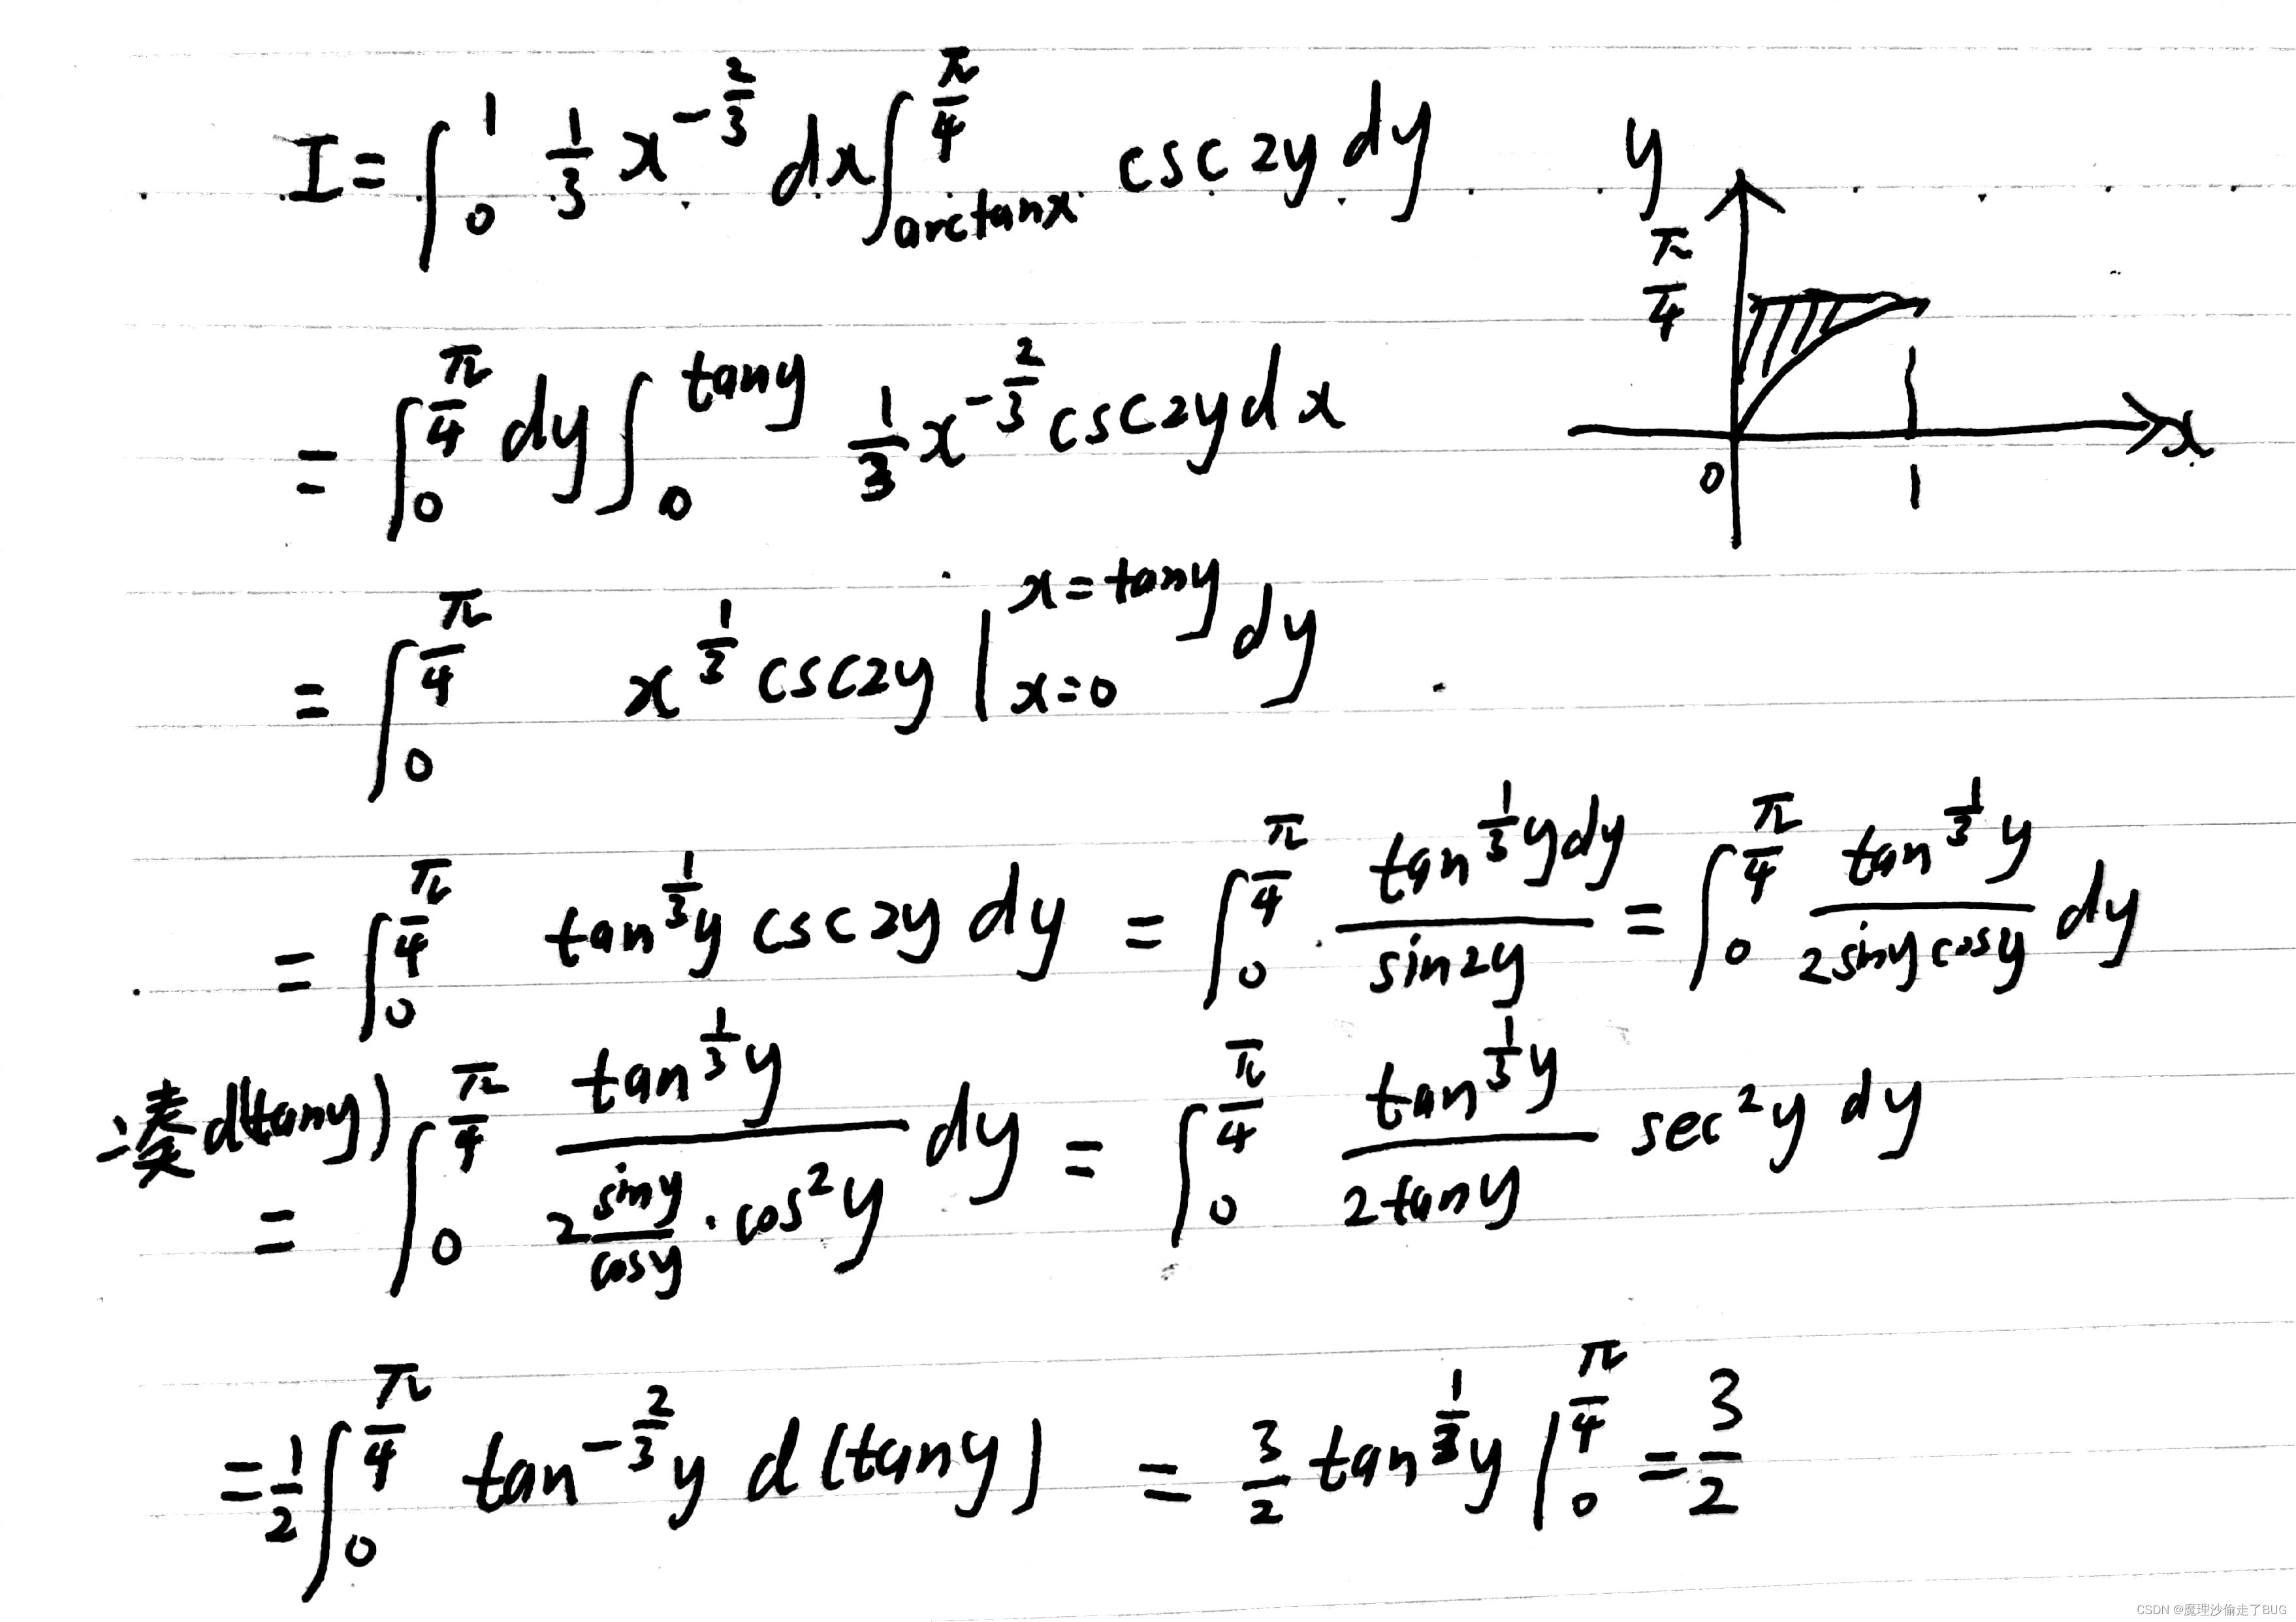 I = ∫₀¹ ⅓ x^{-2/3} dx ∫_{arctanx}^{π/4} csc2y dy
y
π/4
0
1
x
= ∫₀^{π/4} dy ∫₀^{tany} ⅓ x^{-2/3} csc2y dx
= ∫₀^{π/4} x^{1/3} csc2y |_{x=0}^{x=tany} dy
= ∫₀^{π/4} tan^{1/3}y csc2y dy = ∫₀^{π/4} tan^{1/3}y dy / sin2y = ∫₀^{π/4} tan^{1/3}y / (2siny cosy) dy
凑d(tany)
= ∫₀^{π/4} tan^{1/3}y / (2 (siny/cosy) · cos²y) dy = ∫₀^{π/4} tan^{1/3}y / (2tany) sec²y dy
= ½ ∫₀^{π/4} tan^{-2/3}y d(tany) = 3/2 tan^{1/3}y |₀^{π/4} = 3/2
CSDN @魔理沙偷走了BUG